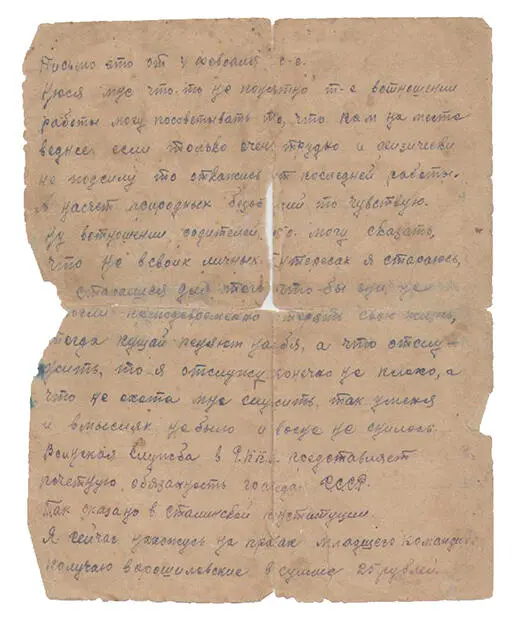 Письмо это от 4 февраля с-г.
Нюся мне что-то не понятно т-е вотношении
работы могу посоветывать то, что вам на месте
веднее если только очен трудно и физически
не подсилу то откажись от последней работы.
А насчет природных то чувствую.
Ну вотношении родителей могу сказать,
что не всвоих личных интересах я стараюсь,
стараешся для того что-бы они не
терять свою жизнь,
тогда а что отслу-
жить, то я отслужу конечно не плохо, а
что не охота мне служить так уменя
и вмыслях небыло и восне не снилось
Воинская служба в Р.К.К.А. представляет
почетную обязаность гр-на СССР.
Так сказано в сталинской конституции.
Я сейчас нахожусь на правах младшего командира
получаю ворошиловские в сумме 25 рублей.